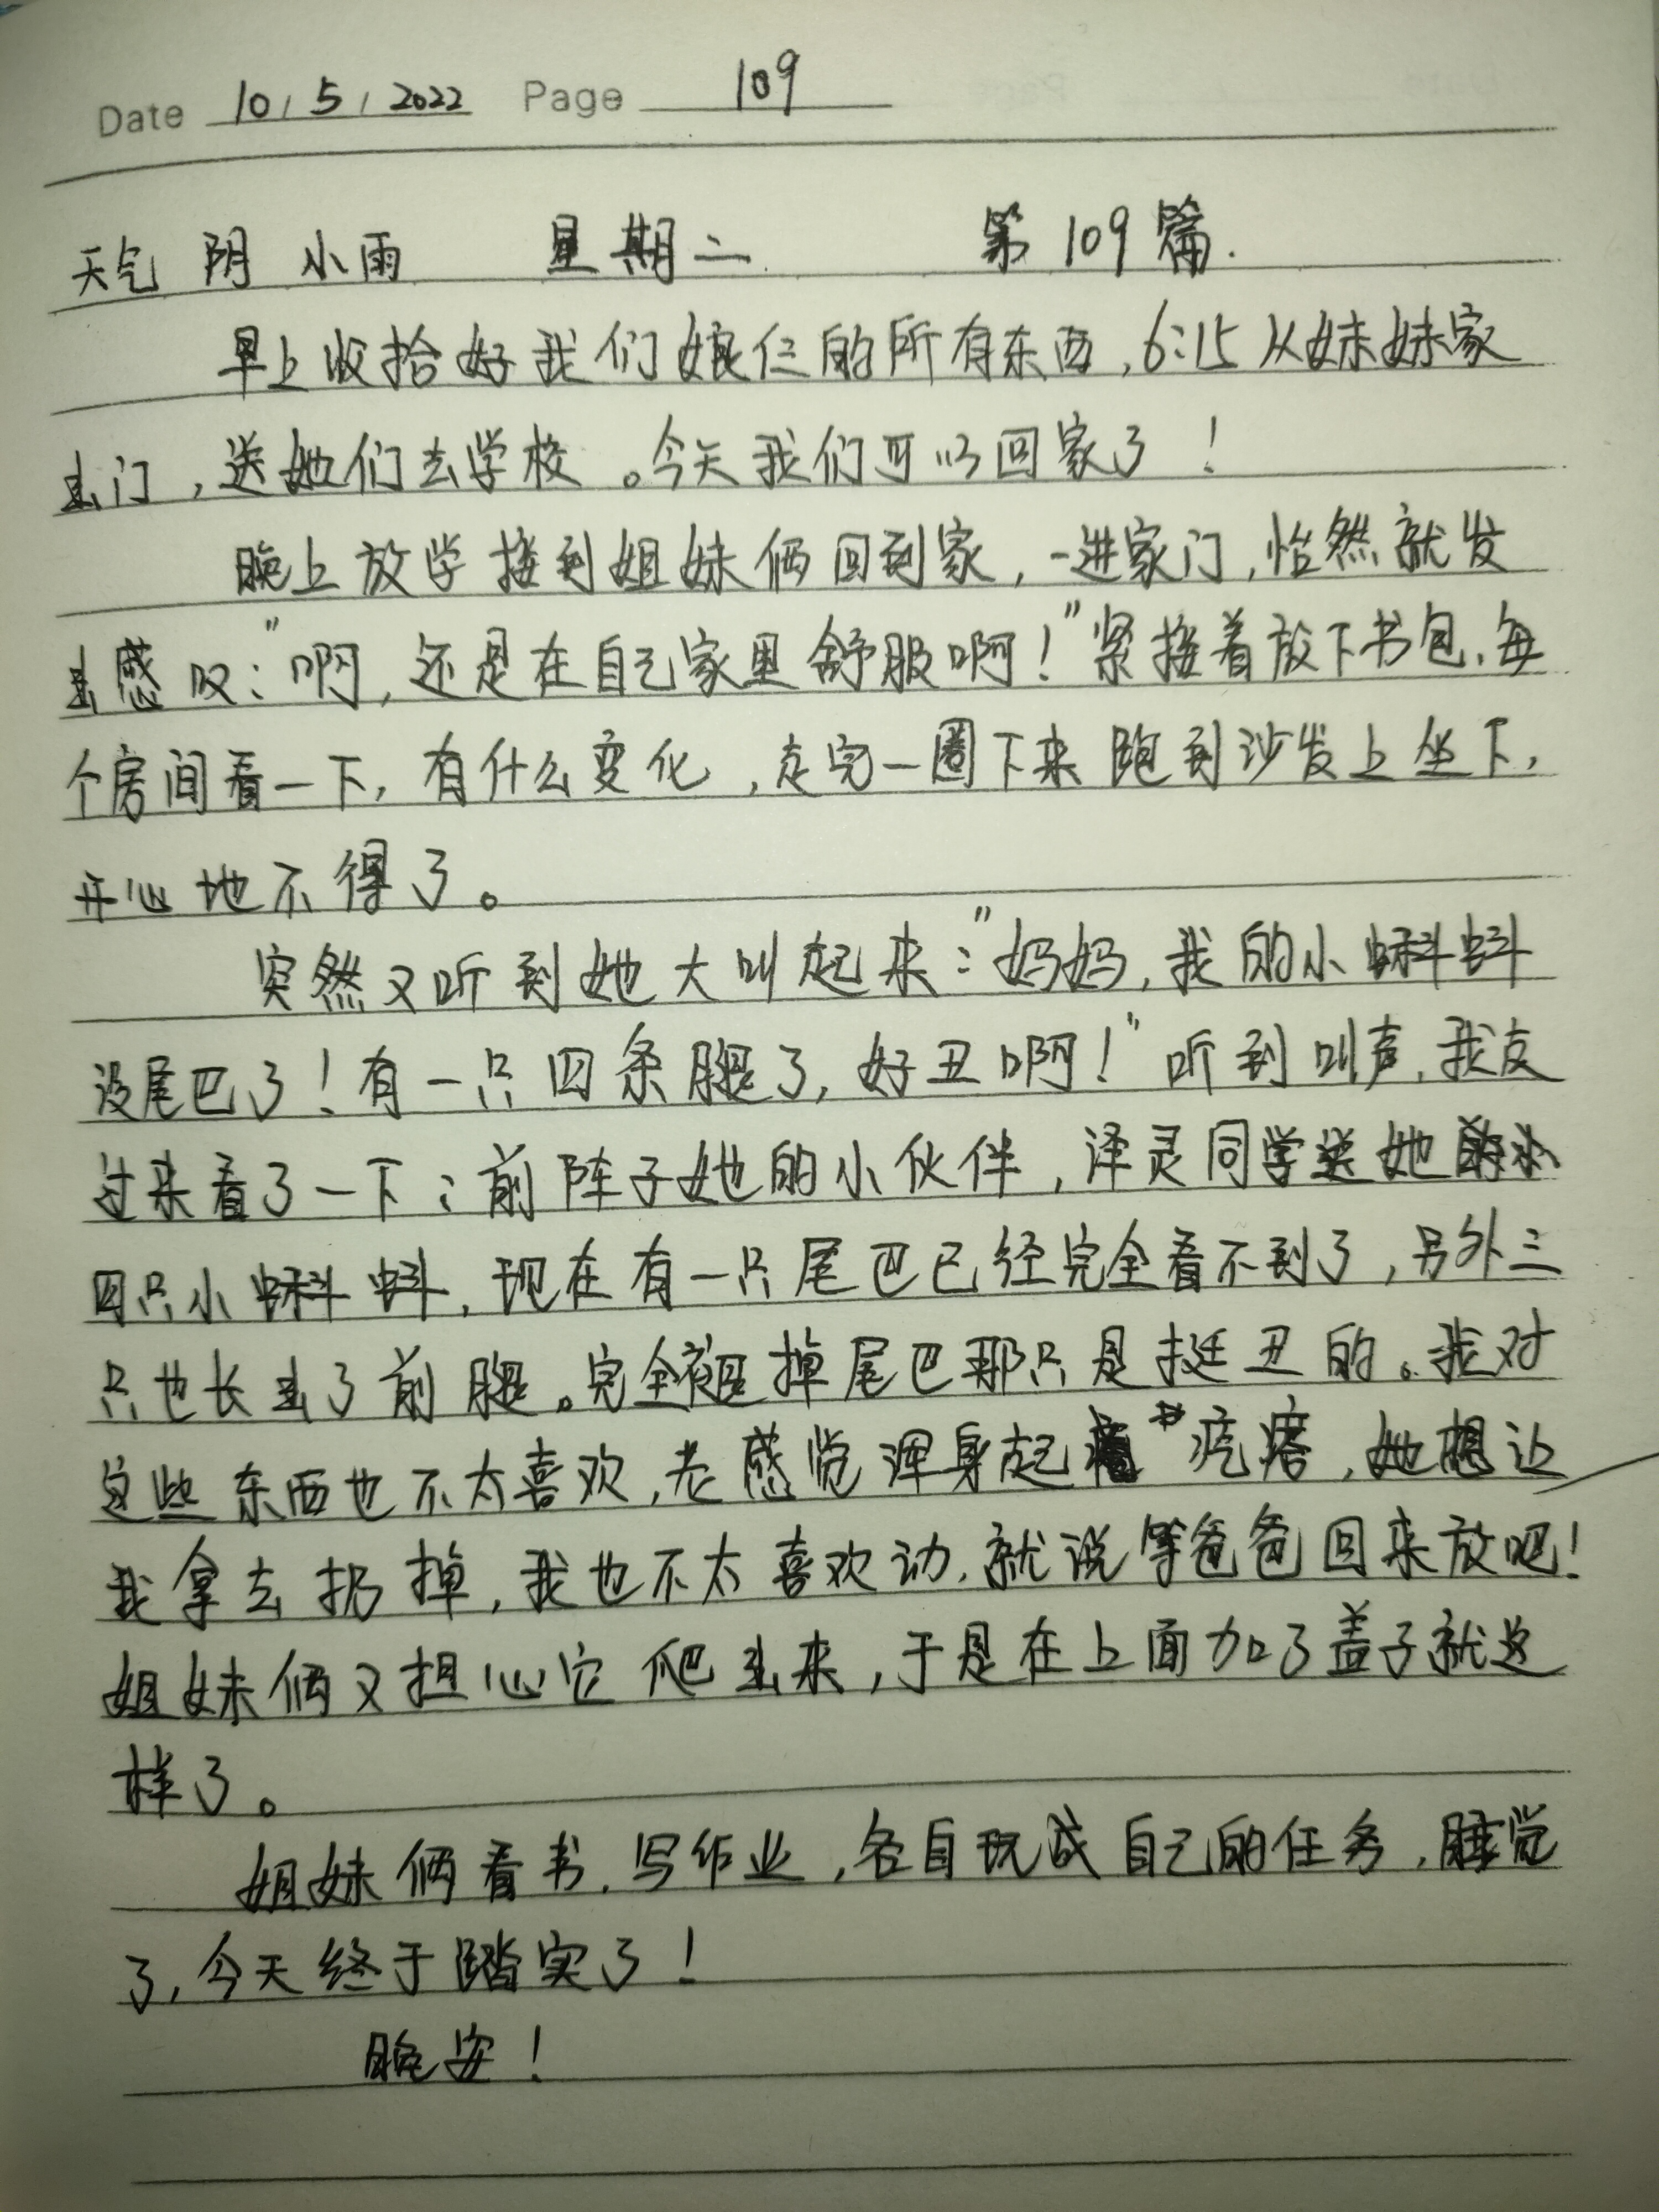 Date 10 / 5 / 2022 Page 109
天气 阴 小雨 星期二 第109篇.
早上收拾好我们娘仨的所有东西,6:15从妹妹家
出门,送她们去学校。今天我们可以回家了!
晚上放学接到姐妹俩回到家,一进家门,怡然就发
出感叹:"啊,还是在自己家里舒服啊!"紧接着放下书包,每
个房间看一下,有什么变化,走完一圈下来跑到沙发上坐下,
开心地不得了。
突然又听到她大叫起来:"妈妈,我的小蝌蚪
没尾巴了!有一只四条腿了,好丑啊!"听到叫声,我友
过来看了一下:前阵子她的小伙伴,泽灵同学送她的
四只小蝌蚪,现在有一只尾巴已经完全看不到了,另外三
只也长出了前腿。完全褪掉尾巴那只是挺丑的。我对
这些东西也不太喜欢,老感觉浑身起疙瘩,她想让
我拿去扔掉,我也不太喜欢动,就说等爸爸回来放吧!
姐妹俩又担心它爬出来,于是在上面加了盖子就这
样了。
姐妹俩看书,写作业,各自玩成自己的任务,睡觉
了,今天终于踏实了!
晚安!